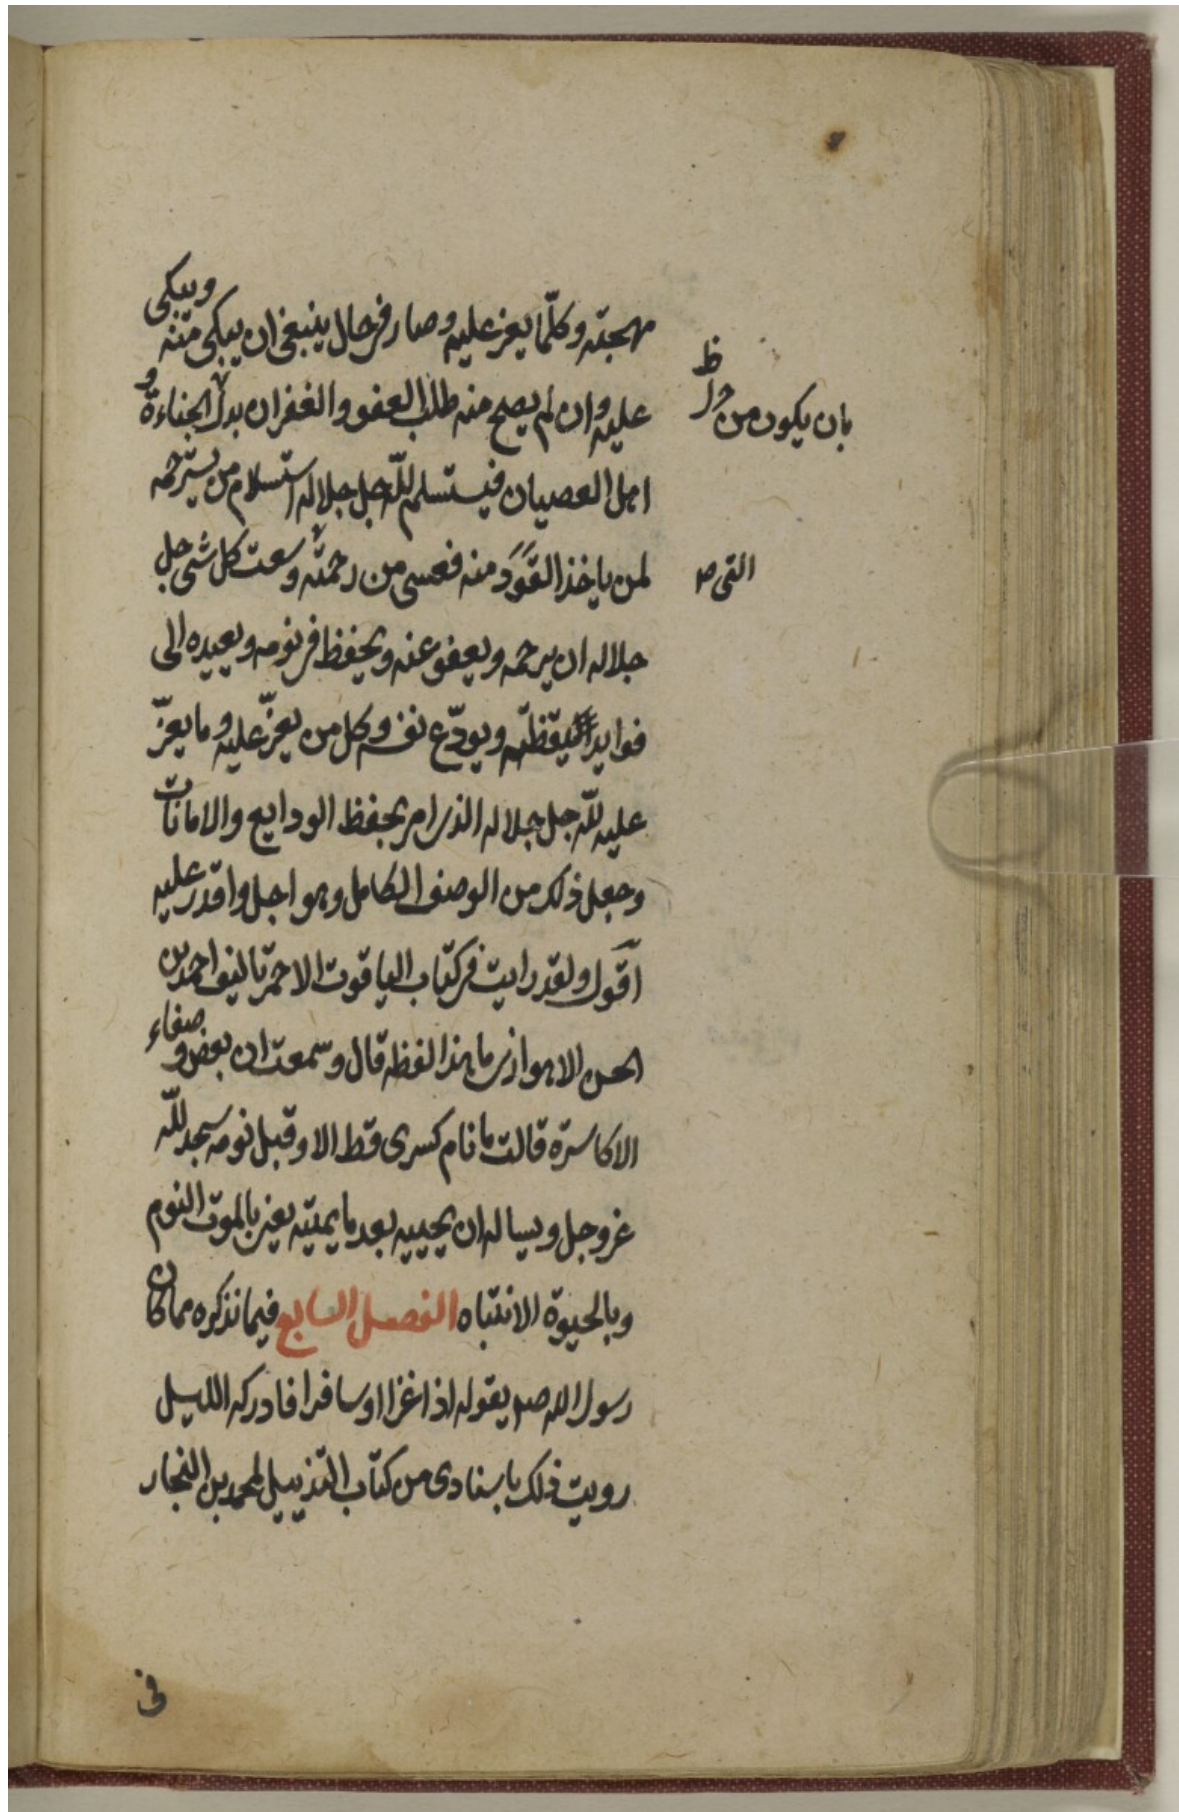 مهجته وكلّما يعز عليه وصار في حال ينبغي ان يبكى منه ويبكى
عليه وان لم يصح منه طلب العفو والغفران بدل الجناءة و
اهل العصيان فيستسلم للّه جل جلاله استسلام من يسترحم
لمن ياخذ القَوَدَ منه فعسى من رحمته وسعت كل شئ جل
جلاله ان يرحمه ويعفو عنه ويحفظ في نومه ويعيده الى
فوايد يقظته ويودّع نفسه وكل من يعزّ عليه وما يعزّ
عليه للّه جل جلاله الذى امر بحفظ الودايع والامانات
وجعل ذلك من الوصف الكامل وهو اجل واقدر عليه
اقول ولقد رايت في كتاب الياقوت الاحمر تاليف احمد بن
الحسن الاهوازى ما هذا لفظه قال وسمعت ان بعض وصفاء
الاكاسرة قالت ما نام كسرى قط الا وقبل نومه سجد للّه
عز وجل ويساله ان يحييه بعد ما يميته يعنى بالموت النوم
وبالحيوة الانتباه الفصل السابع فيما نذكره مما كان
رسول الله صم يقوله اذا غزا او سافر فادركه الليل
رويت ذلك باسنادى من كتاب التذييل لمحمد بن النجار
في
ظ
بان يكون من
التى ص